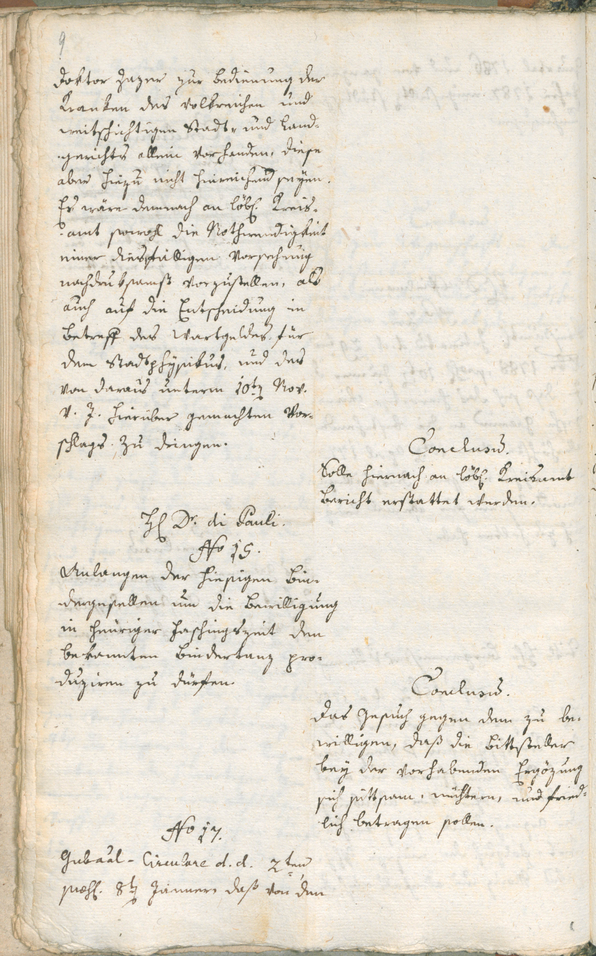 9
Doktor Hazer zur Bedienung der
Kranken des volkreichen und
weitschichtigen Stadt- und Land-
gerichts allein vorhanden, diese
aber hiezu nicht hinreichend seyen.
Es wäre demnach an löbl. Kreis-
amt sowohl die Nothwendigkeit
einer diesfälligen Vorsehung
nachdruksamst vorzustellen, als
auch auf die Entscheidung in
Betreff des Wartgeldes für
den Stadtphysikus, und des
von daraus unterm 10ten Nov.
v. J. hierüber gemachten Vor-
schlags zu dringen.
Conclusum.
Solle hiernach an löbl. Kreisamt
Bericht erstattet werden.
H. Dr. di Pauli.
No 15.
Anlangen der hiesigen Bin-
dergesellen um die Bewilligung
in heuriger Faschingszeit den
bekannten Bindertanz pro-
duziren zu dürfen.
Conclusum.
Das Gesuch gegen dem zu be-
willigen, daß die Bittsteller
bey der vorhabenden Ergözung
sich sittsam, nüchtern, und fried-
lich betragen sollen.
No 17.
Gubernal-Circulare d. d. 2ten
præs. 8ten Jänners daß von den